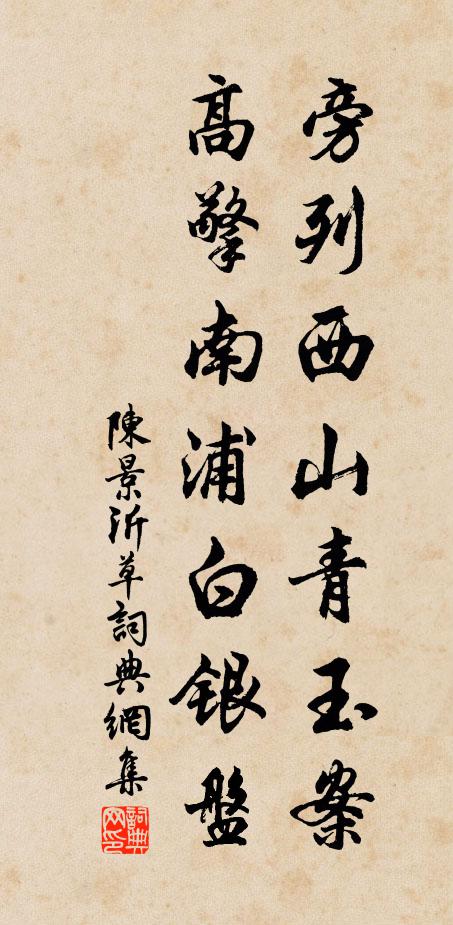 旁列西山青玉案
高擎南浦白銀盤
陳景沂草詞典網集
詞典网印